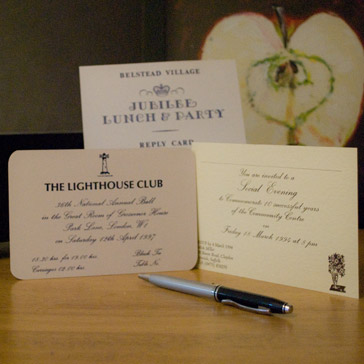 BELSTEAD VILLAGE
JUBILEE
LUNCH & PARTY
REPLY CARD
THE LIGHTHOUSE CLUB
36th National Annual Ball
in the Great Room of Grosvenor House
Park Lane, London, W1
on Saturday 19th April 1997
18.30 hrs for 19.00 hrs
Black Tie
Carriages 02.00 hrs
Table No
You are invited to a
Social Evening
to Commemorate 10 successful years
of the Community Centre
on
Friday 18 March 1995 at 8 pm